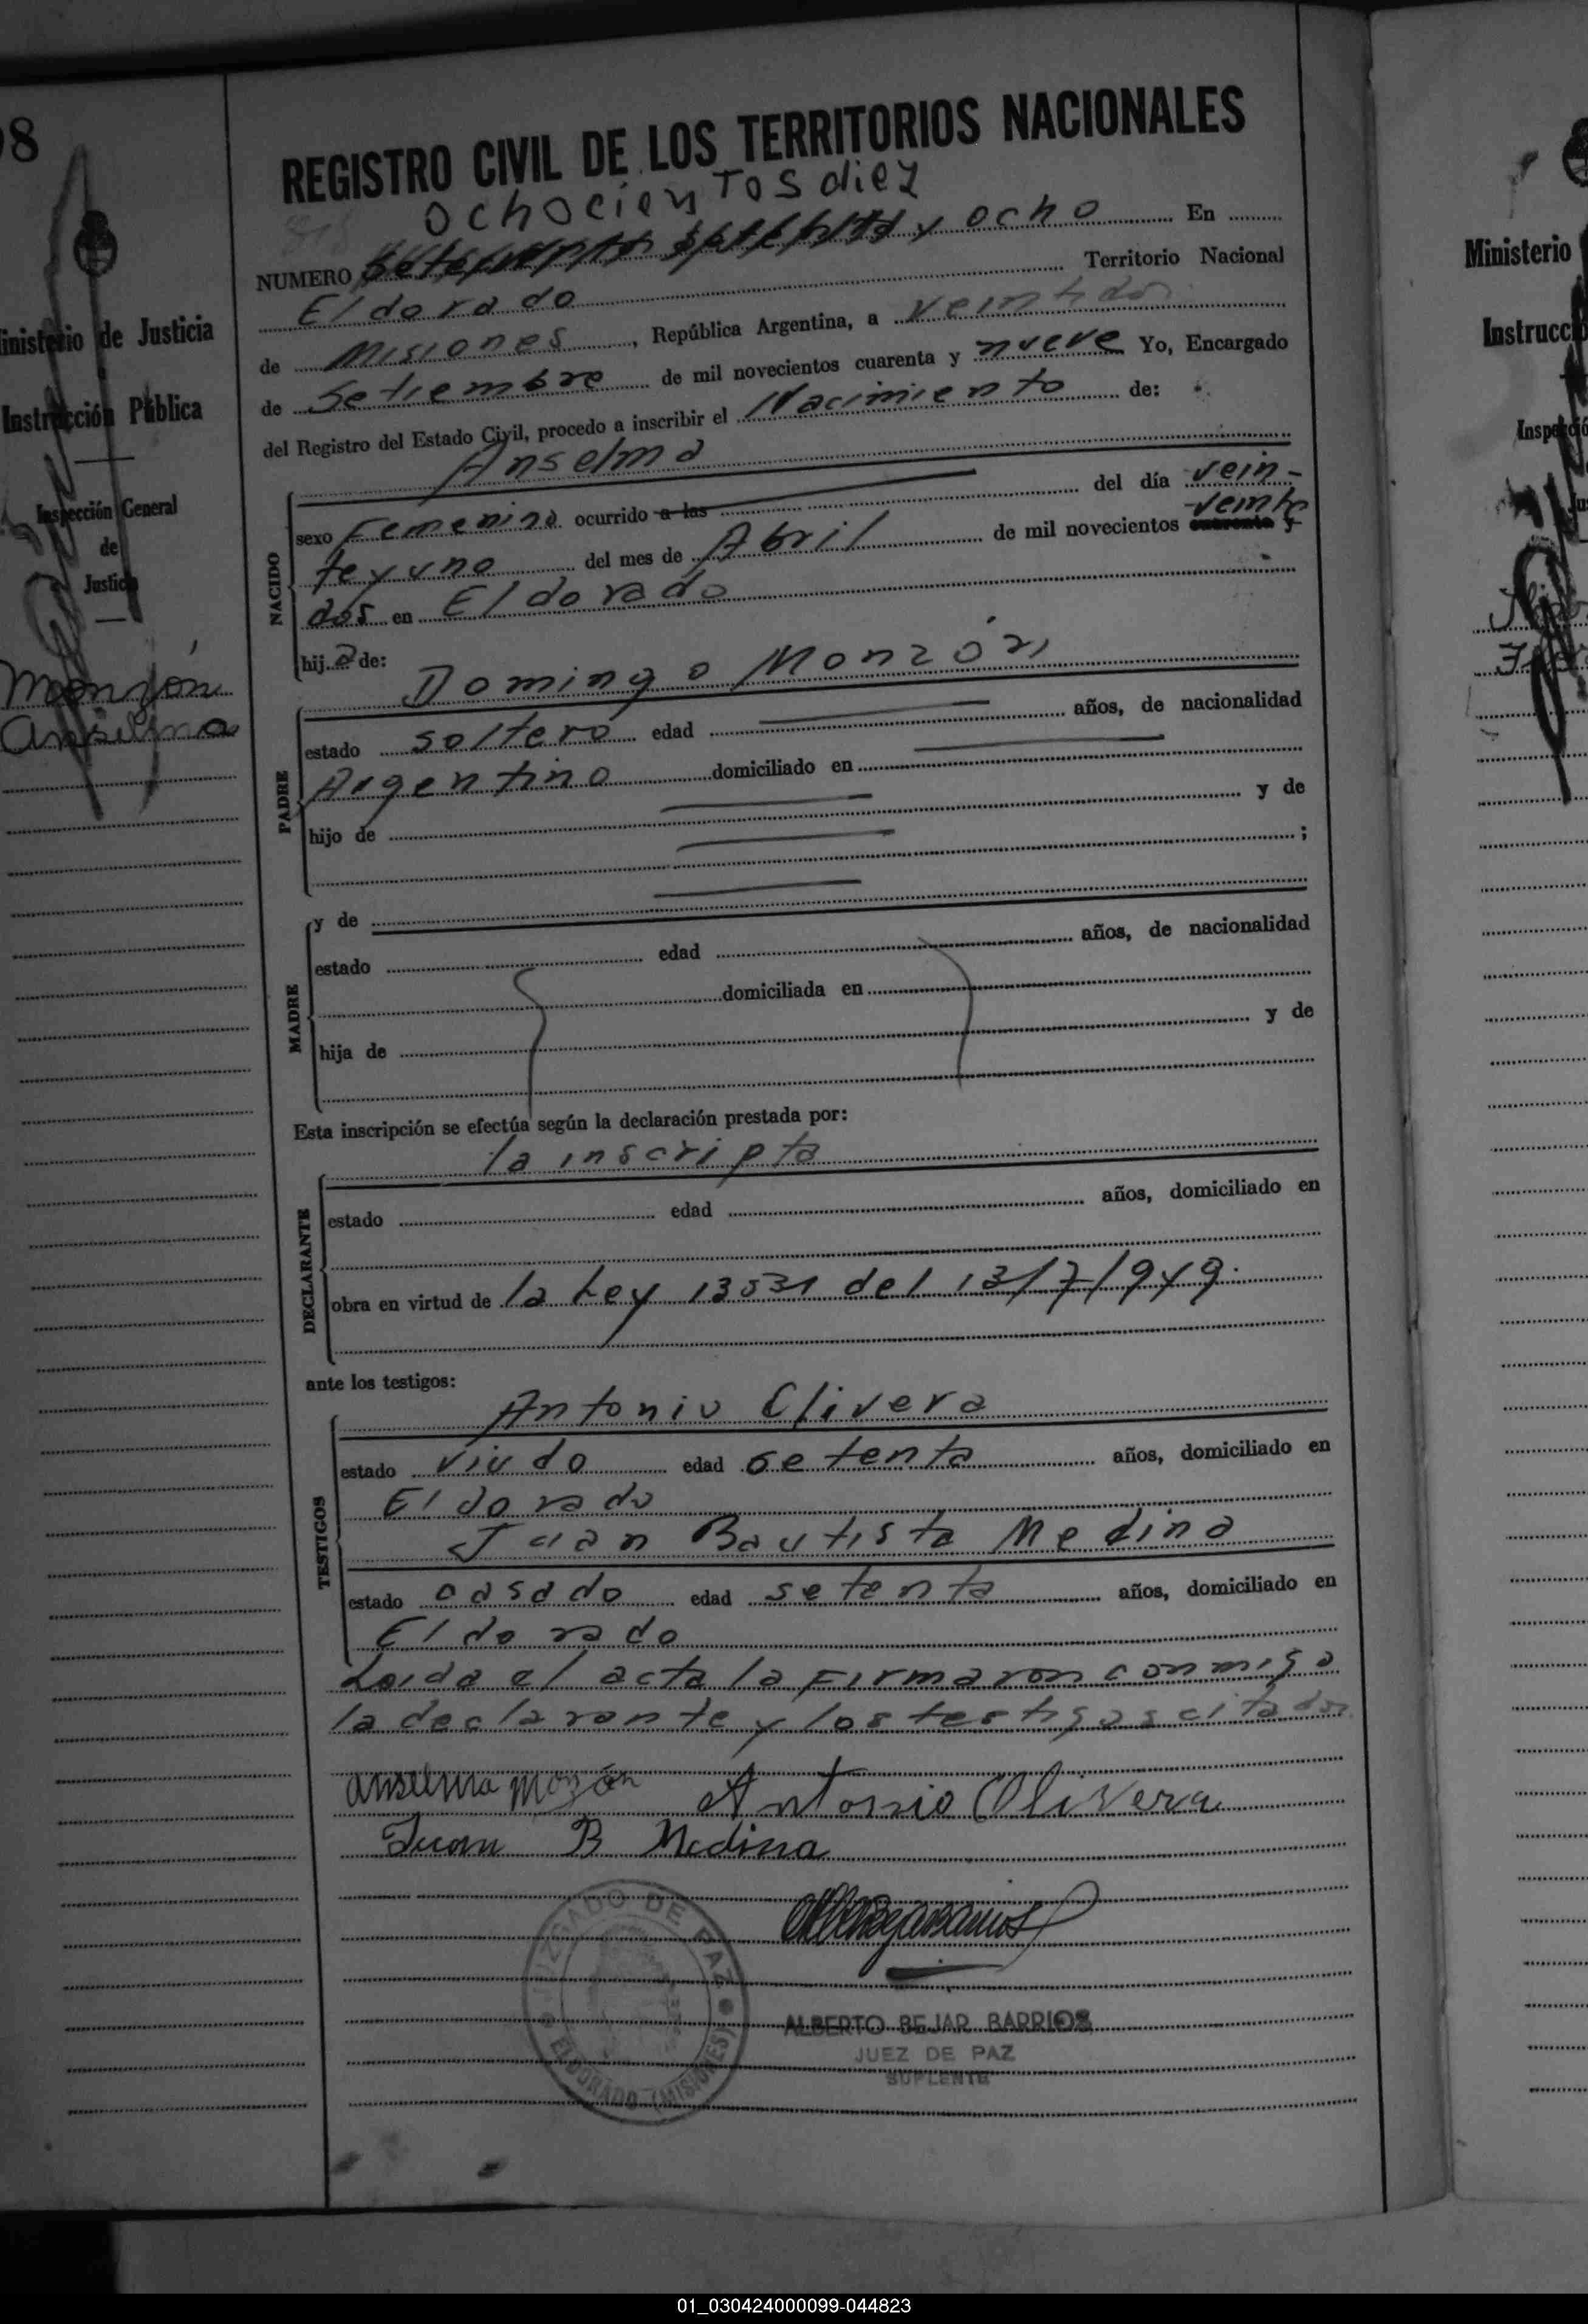 98
Ministerio de Justicia
Instrucción Pública
Inspección General
de
Justicia
Monzón
Anselma
REGISTRO CIVIL DE LOS TERRITORIOS NACIONALES
ochocientos diez
NUMERO y ocho En
Eldorado Territorio Nacional
de Misiones, República Argentina, a veintidos
de Setiembre de mil novecientos cuarenta y nueve Yo, Encargado
del Registro del Estado Civil, procedo a inscribir el Nacimiento de:
Anselma
NACIDO
sexo Femenino ocurrido a las del día vein-
veinte
te y uno del mes de Abril de mil novecientos cuarenta y
dos en Eldorado
hija de:
Domingo Monzón
PADRE
estado soltero edad años, de nacionalidad
Argentino domiciliado en
hijo de y de
;
MADRE
y de
estado edad años, de nacionalidad
domiciliada en
hija de y de
Esta inscripción se efectúa según la declaración prestada por:
la inscripta
DECLARANTE
estado edad años, domiciliado en
obra en virtud de la Ley 13531 del 13/7/949.
ante los testigos:
Antonio Olivera
TESTIGOS
estado viudo edad setenta años, domiciliado en
Eldorado
Juan Bautista Medina
estado casado edad setenta años, domiciliado en
Eldorado
Leida el acta la Firmaron conmigo
la declarante y los testigos citados
anselma monzón Antonio Olivera
Juan B Medina
JUZGADO DE PAZ
ELDORADO (MISIONES)
ALBERTO BEJAR BARRIOS
JUEZ DE PAZ
SUPLENTE
Ministerio
Instrucció
Inspecció
01_030424000099-044823